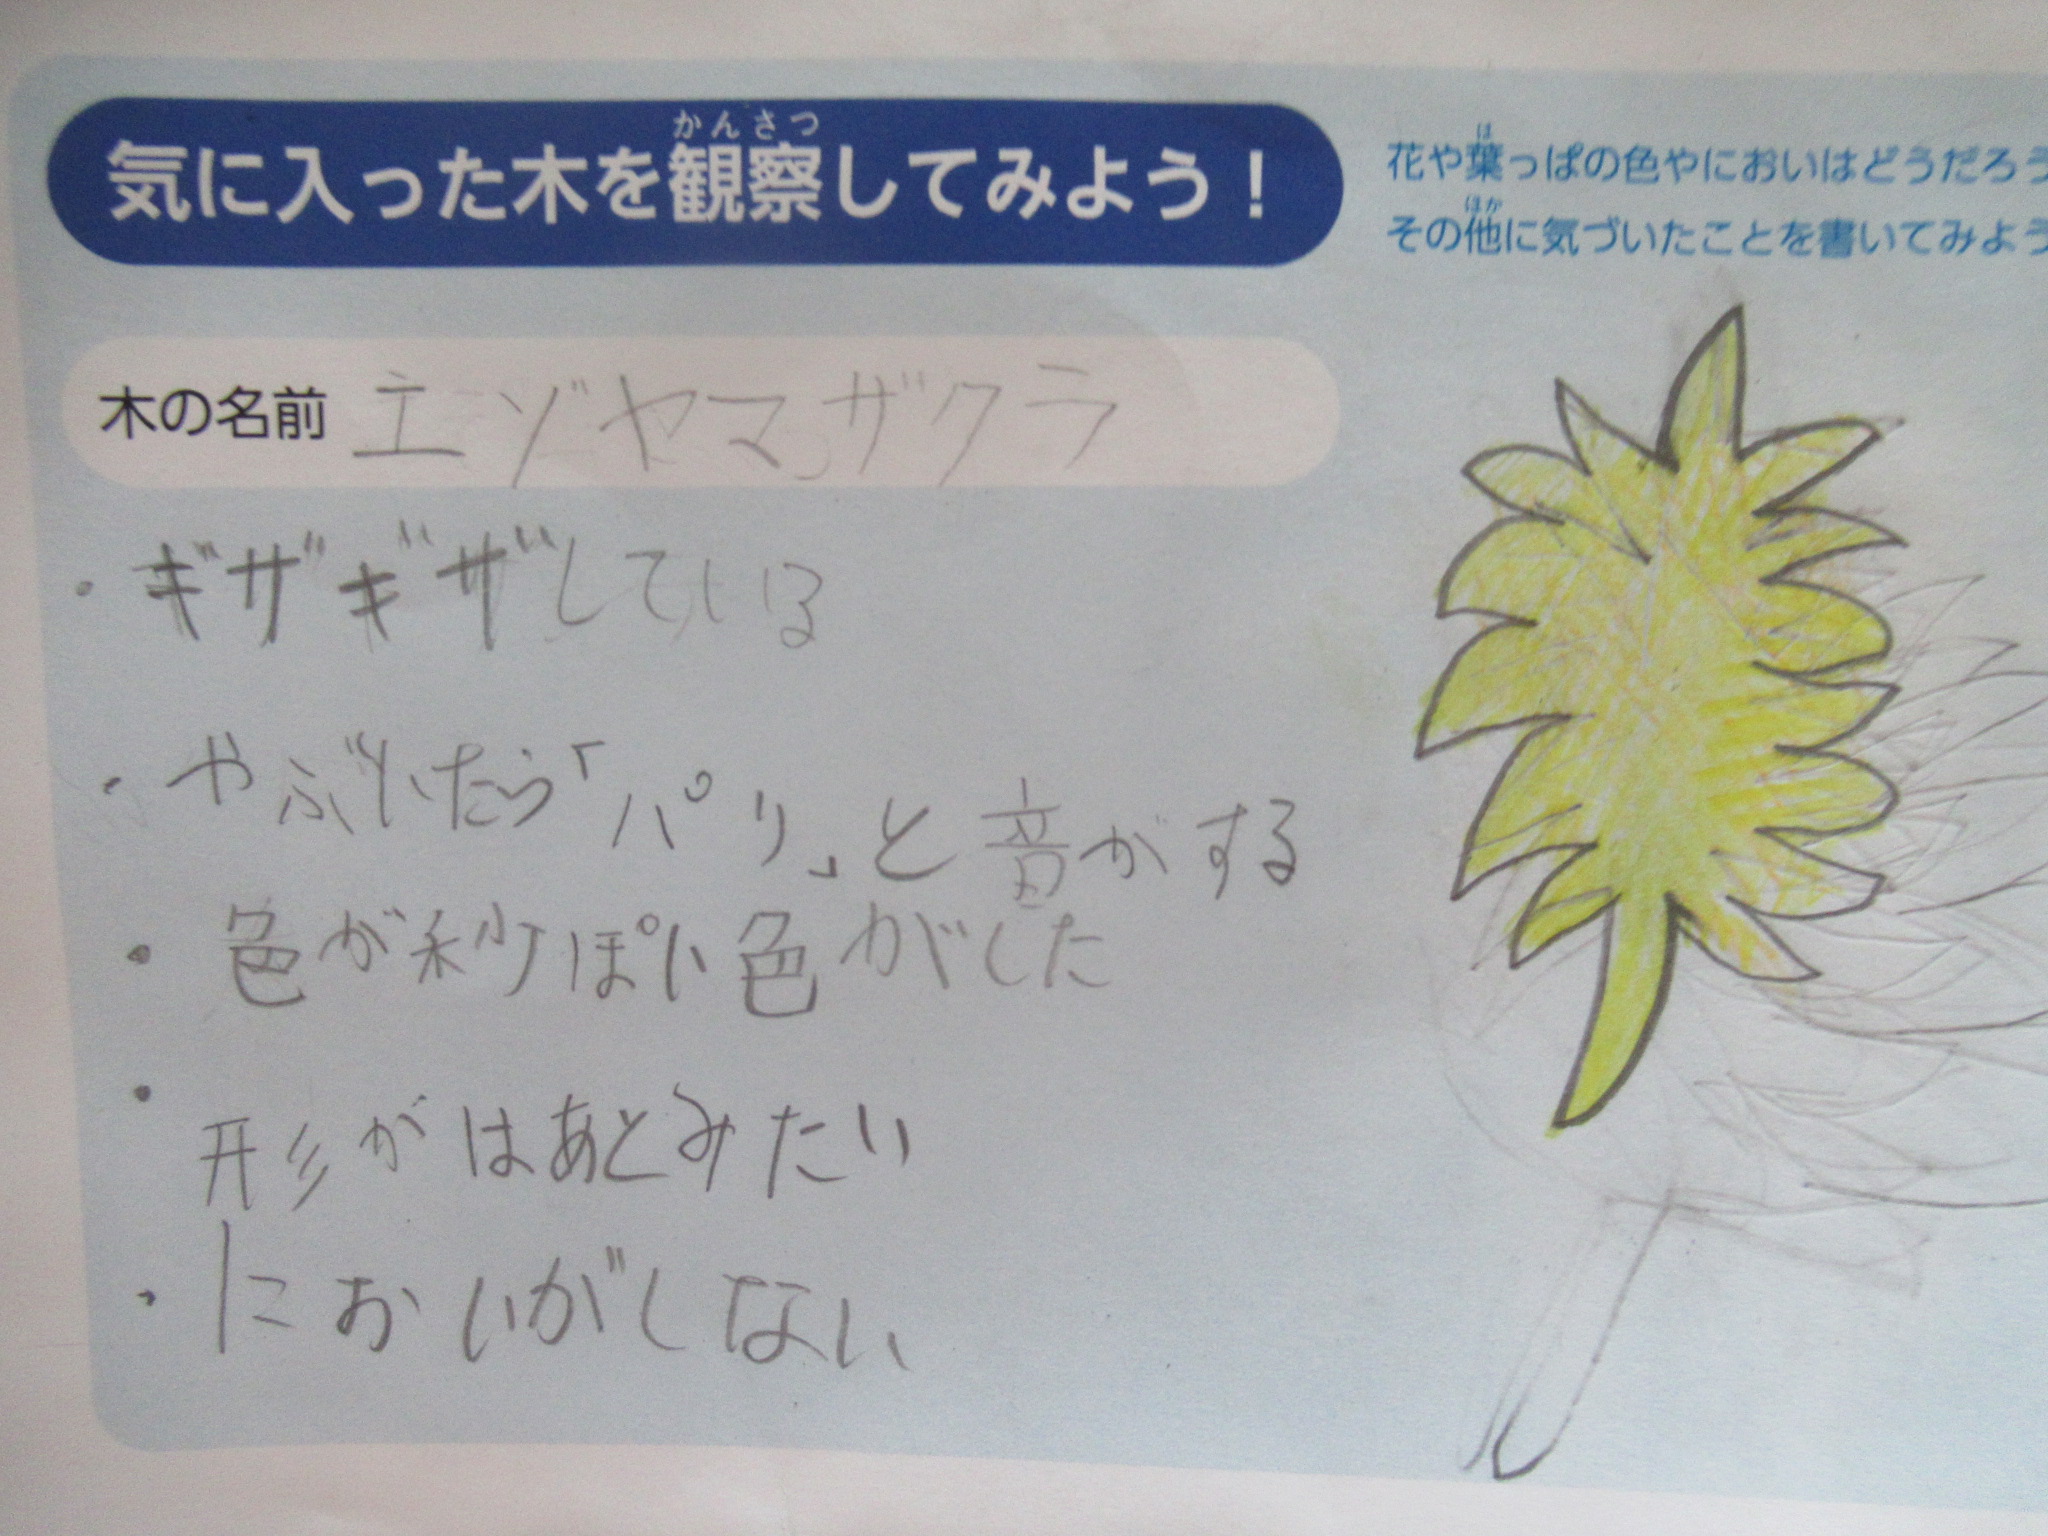 気に入った木を観察してみよう！
かんさつ
花や葉っぱの色やにおいはどうだろう
は
その他に気づいたことを書いてみよう
ほか
木の名前 エゾヤマザクラ
・ギザギザしている
・やぶいたら「パリ」と音がする
・色が秒ぽい色がした
・形がはあとみたい
・においがしない